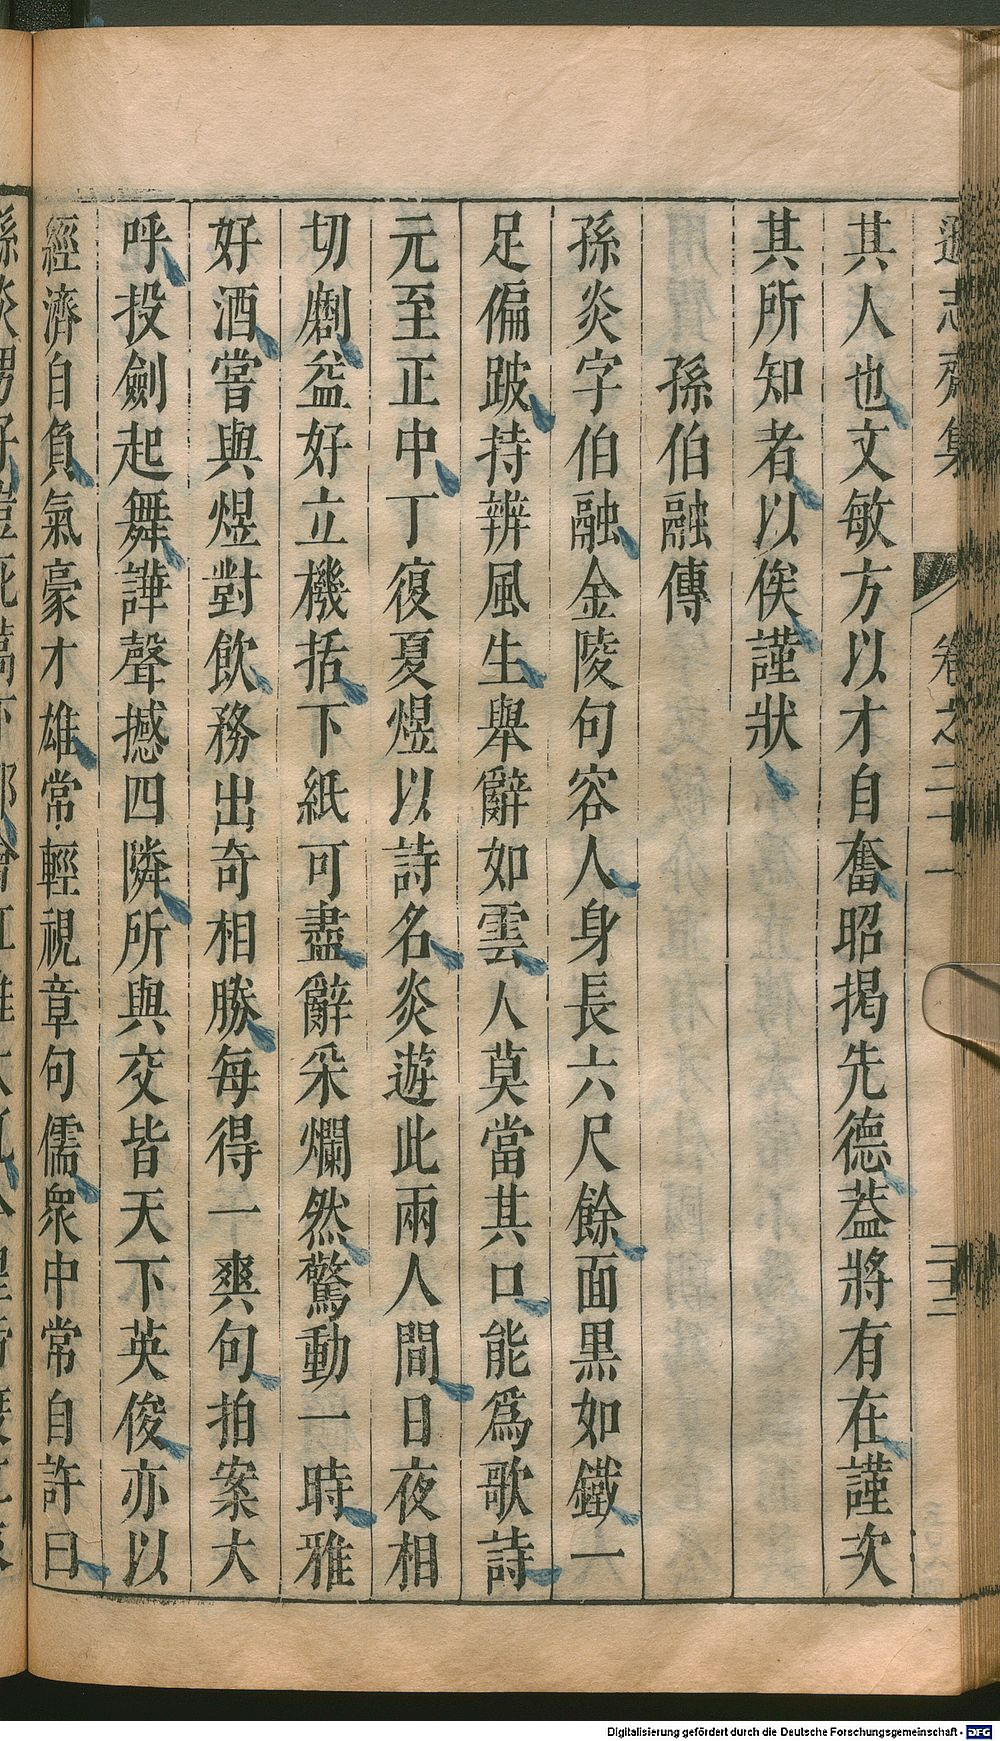 遜志齋集 卷之二十一 二十二
其人也文敏方以才自奮昭揭先德蓋將有在謹次
其所知者以俟謹狀
孫伯融傳
孫炎字伯融金陵句容人身長六尺餘面黒如鐵一
足偏跛持辨風生舉辭如雲人莫當其口能爲歌詩
元至正中丁復夏煜以詩名炎遊此兩人間日夜相
切劘益好立機括下紙可盡辭采爛然驚動一時雅
好酒嘗與煜對飲務出奇相勝每得一爽句拍案大
呼投劍起舞譁聲撼四隣所與交皆天下英俊亦以
經濟自負氣豪才雄常輕視章句儒衆中常自許曰
Digitalisierung gefördert durch die Deutsche Forschungsgemeinschaft - DFG